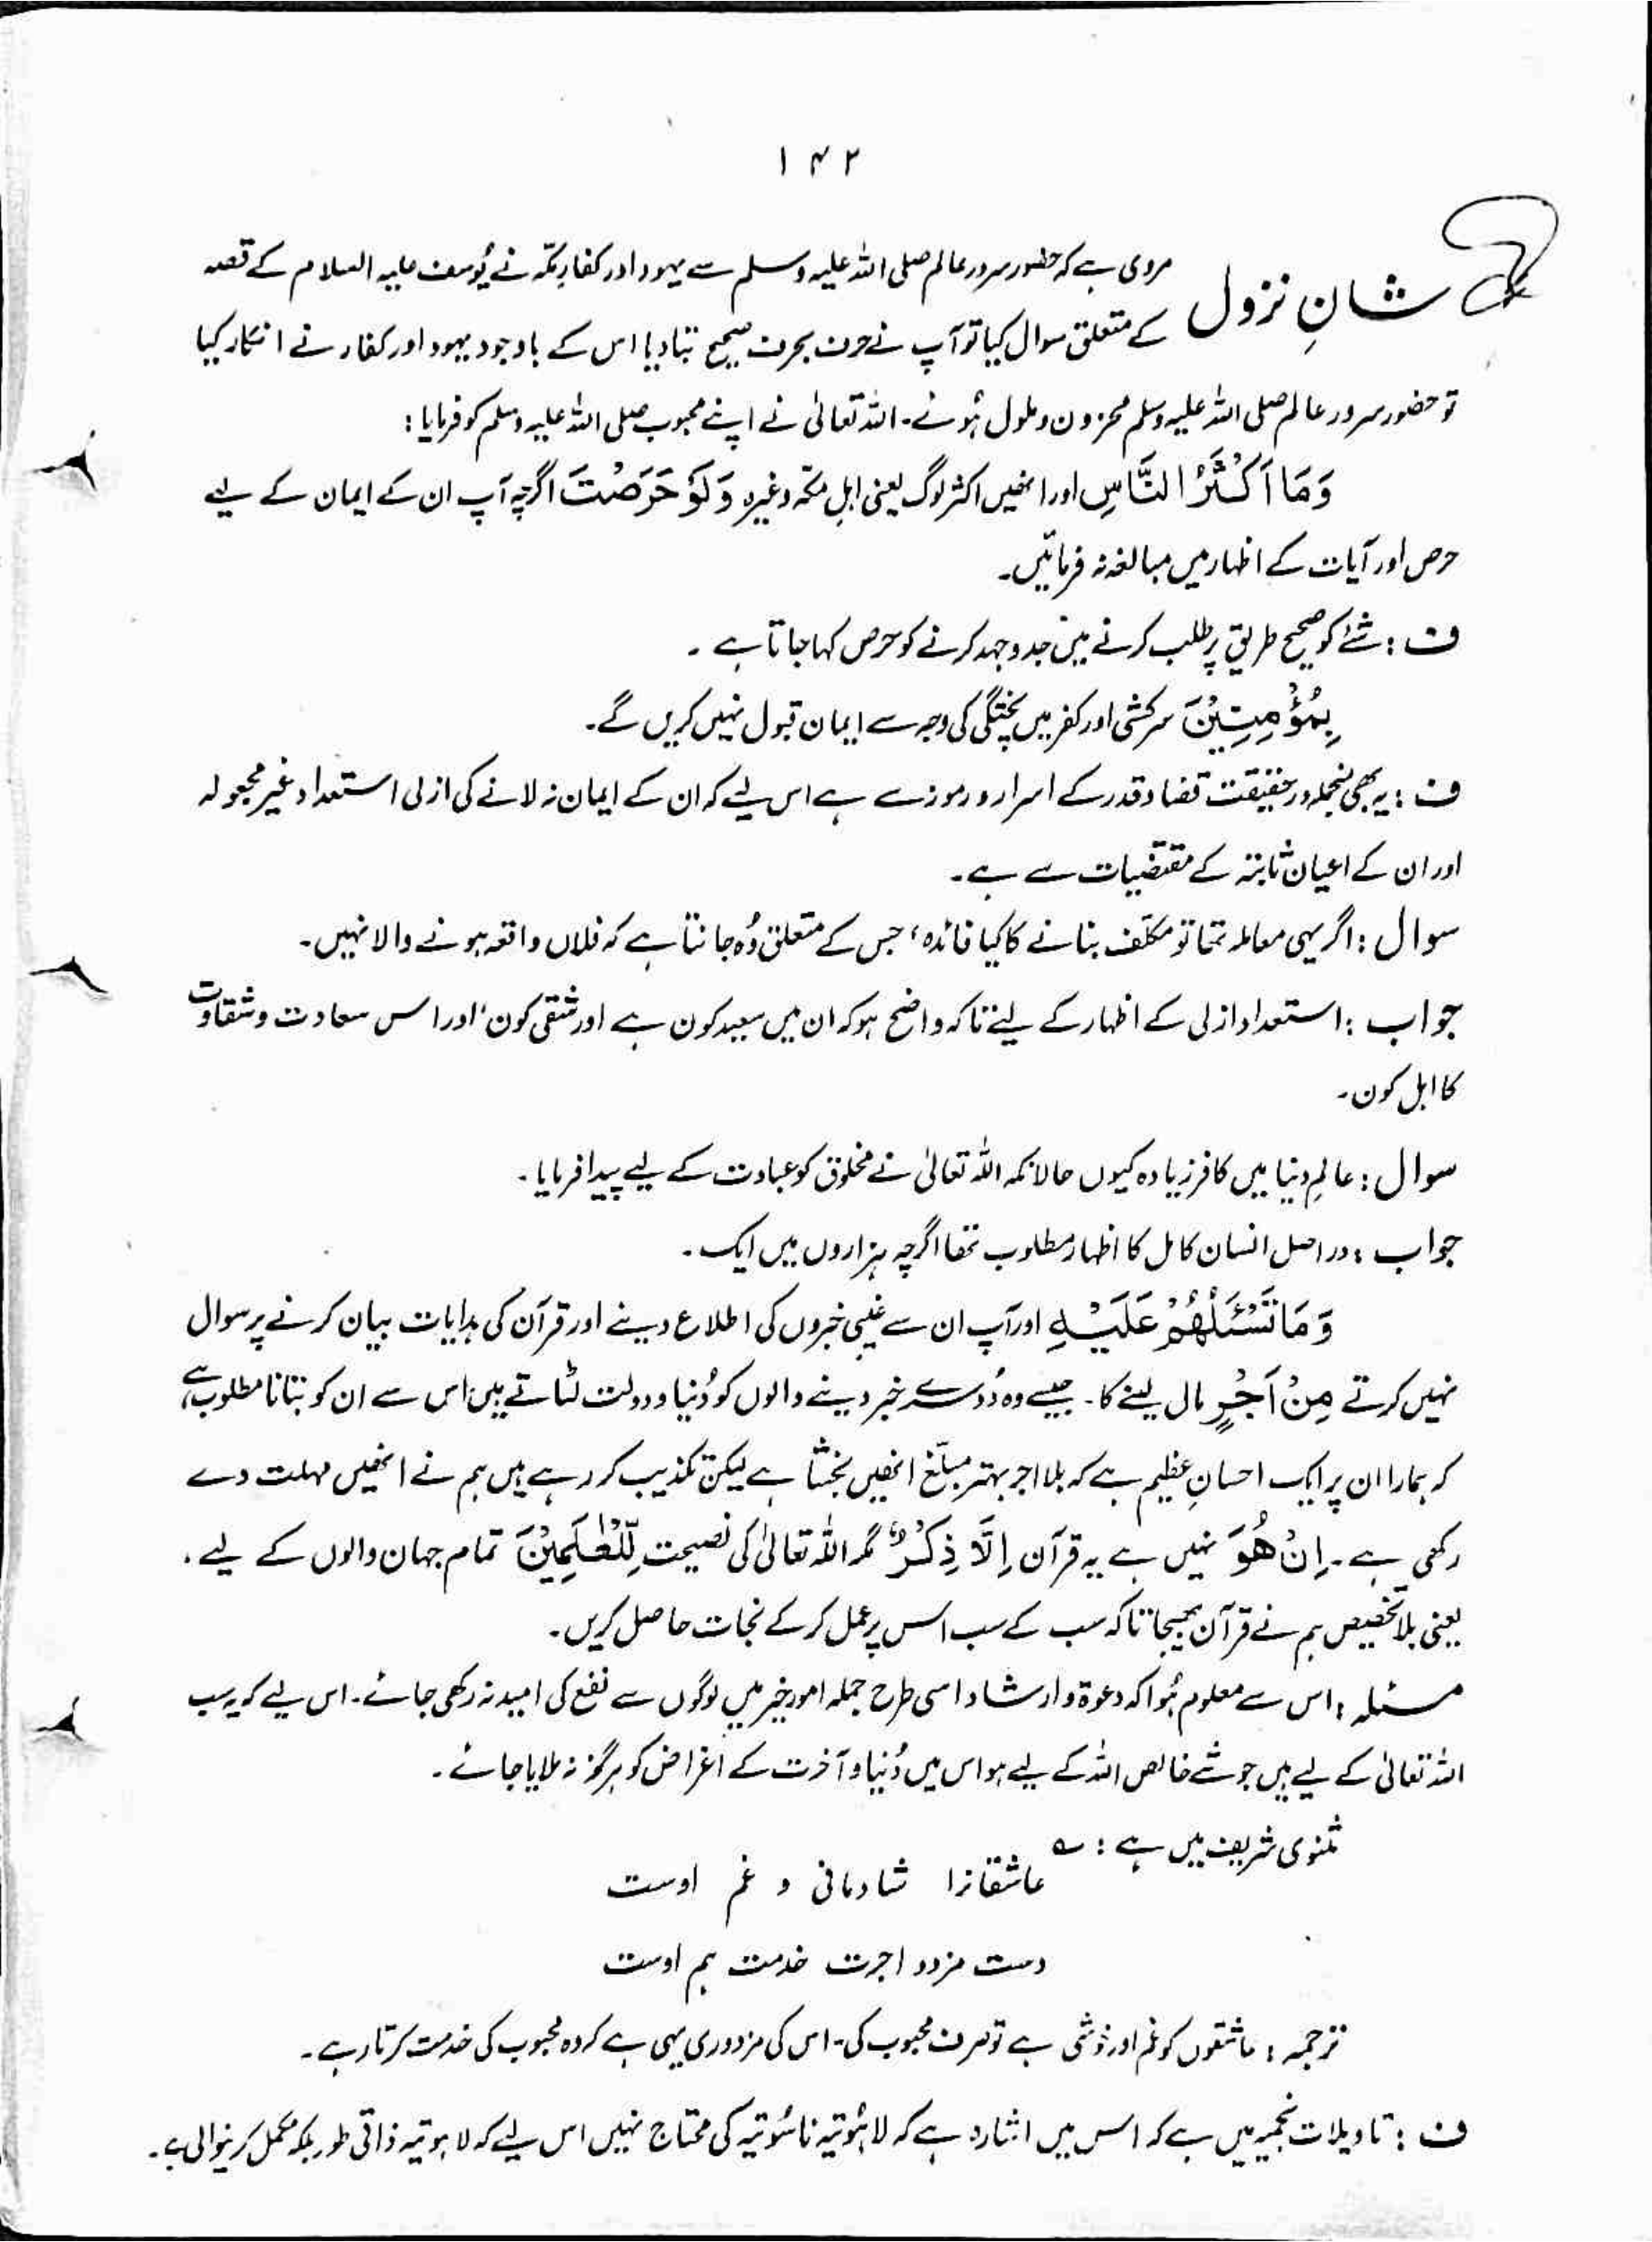 ۱۴۲
شانِ نزول مروی ہے کہ حضور سرور عالم صلی اللہ علیہ وسلم سے یہود اور کفارِ مکّہ نے یُوسف علیہ السلام کے قصہ
کے متعلق سوال کیا تو آپ نے حرف بحرف صحیح بتا دیا اس کے باوجود یہود اور کفار نے انکار کیا
تو حضور سرور عالم صلی اللہ علیہ وسلم محزون و ملول ہُوئے۔ اللہ تعالیٰ نے اپنے محبوب صلی اللہ علیہ وسلم کو فرمایا :
وَمَا اَكْثَرُ النَّاسِ اور انھیں اکثر لوگ یعنی اہلِ مکّہ وغیرہ وَلَوْ حَرَصْتَ اگرچہ آپ ان کے ایمان کے لیے
حرص اور آیات کے اظہار میں مبالغہ نہ فرمائیں۔
ف : شئے کو صحیح طریق پر طلب کرنے میں جدوجہد کرنے کو حرص کہا جاتا ہے ۔
بِمُؤْمِنِيْنَ سرکشی اور کفر میں پختگی کی وجہ سے ایمان قبول نہیں کریں گے۔
ف : یہ بھی منجملہ درحقیقت قضا و قدر کے اسرار و رموز سے ہے اس لیے کہ ان کے ایمان نہ لانے کی ازلی استعداد غیر مجعولہ
اور ان کے اعیان ثابتہ کے مقتضیات سے ہے۔
سوال : اگر یہی معاملہ تھا تو مکلّف بنانے کا کیا فائدہ، جس کے متعلق وُہ جانتا ہے کہ فلاں واقعہ ہونے والا نہیں۔
جواب : استعداد ازلی کے اظہار کے لیے تاکہ واضح ہو کہ ان میں سعید کون ہے اور شقی کون، اور اس سعادت و شقاوت
کا اہل کون۔
سوال : عالمِ دنیا میں کافر زیادہ کیوں حالانکہ اللہ تعالیٰ نے مخلوق کو عبادت کے لیے پیدا فرمایا ۔
جواب : دراصل انسان کامل کا اظہار مطلوب تھا اگرچہ ہزاروں میں ایک ۔
وَمَا تَسْئَلُهُمْ عَلَيْهِ اور آپ ان سے غیبی خبروں کی اطلاع دینے اور قرآن کی ہدایات بیان کرنے پر سوال
نہیں کرتے مِنْ اَجْرٍ مال لینے کا ۔ جیسے وہ دُوسرے خبر دینے والوں کو دُنیا و دولت لٹاتے ہیں، اس سے ان کو بتانا مطلوب ہے
کہ ہمارا ان پر ایک احسانِ عظیم ہے کہ بلا اجر بہتر مبلّغ انھیں بخشا ہے لیکن تکذیب کر رہے ہیں ہم نے انھیں مہلت دے
رکھی ہے ۔ اِنْ هُوَ نہیں ہے یہ قرآن اِلَّا ذِكْرٌ مگر اللہ تعالیٰ کی نصیحت لِّلْعٰلَمِيْنَ تمام جہان والوں کے لیے ۔
یعنی بلا تخصیص ہم نے قرآن بھیجا تاکہ سب کے سب اس پر عمل کر کے نجات حاصل کریں۔
مسئلہ : اس سے معلوم ہُوا کہ دعوۃ و ارشاد اسی طرح جملہ امورِ خیر میں لوگوں سے نفع کی امید نہ رکھی جائے۔ اس لیے کہ یہ سب
اللہ تعالیٰ کے لیے ہیں جو شے خالص اللہ کے لیے ہو اس میں دُنیا و آخرت کے اغراض کو ہرگز نہ ملایا جائے ۔
مثنوی شریف میں ہے : ؎
عاشقانرا شادمانی و غم اوست
دست مزد و اجرت خدمت ہم اوست
ترجمہ : عاشقوں کو غم اور خوشی ہے تو صرف محبوب کی۔ اس کی مزدوری یہی ہے کہ وہ محبوب کی خدمت کرتا رہے ۔
ف : تاویلات نجمیہ میں ہے کہ اس میں اشارہ ہے کہ لاہُوتیہ ناسُوتیہ کی محتاج نہیں اس لیے کہ لاہوتیہ ذاتی طور بلکہ مکمل کرنیوالی ہے۔